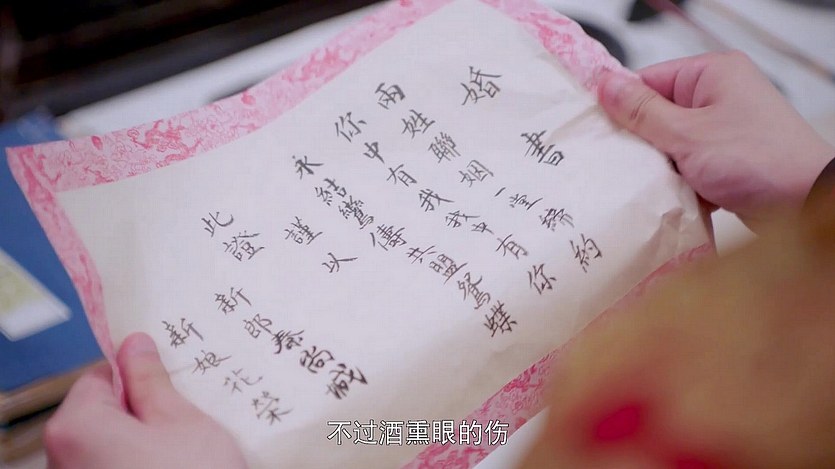 婚書
兩姓聯姻一堂締約
你中有我我中有你
永結鸞儔共盟鴛蝶
謹以
此證
新郎秦尚城
新娘花榮
不过酒熏眼的伤